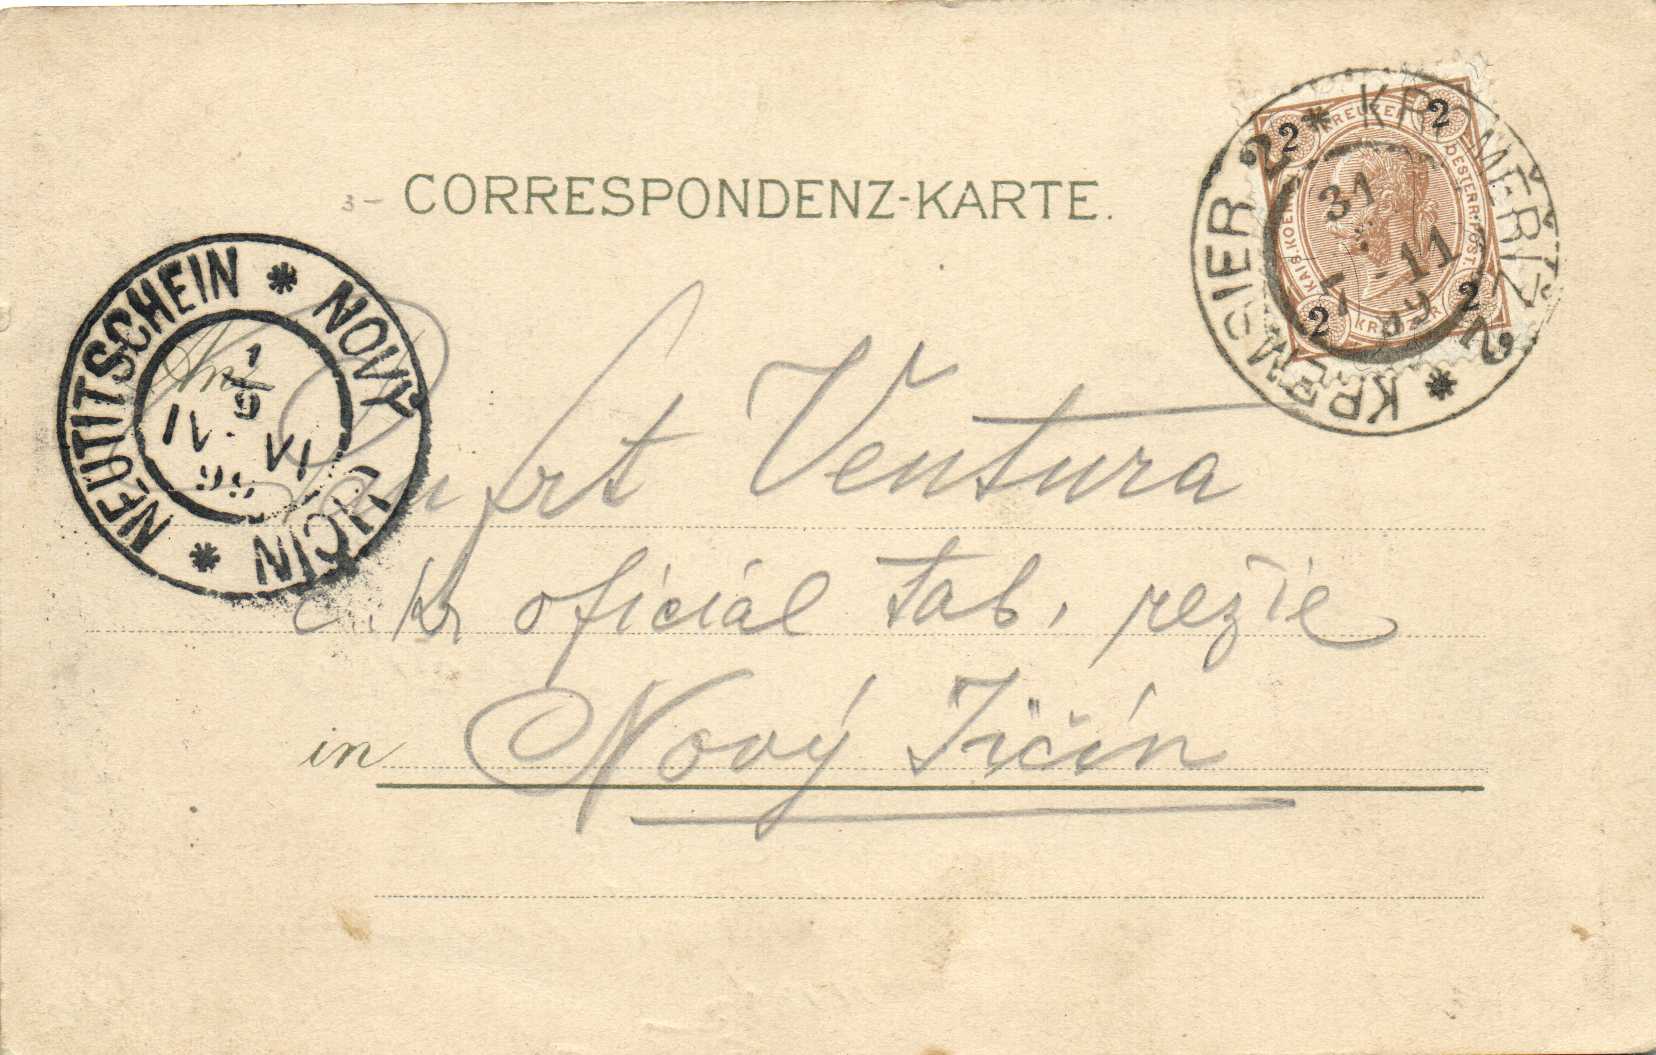 CORRESPONDENZ-KARTE.
3-
2 * KROMĚŘÍŽ 2 * KREMSIER
31
11
KREUZER
KAIS. KOEN. OESTERR. POST.
KREUZER
2 2
2 2
NEUTITSCHEIN * NOVÝ JIČÍN *
1
IV. VI
99
An
Ventura
c. k. oficiál tab. režie
in Nový Jičín